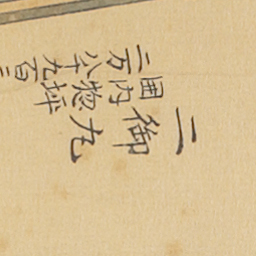 二御丸
囲内惣坪
二万八千九百